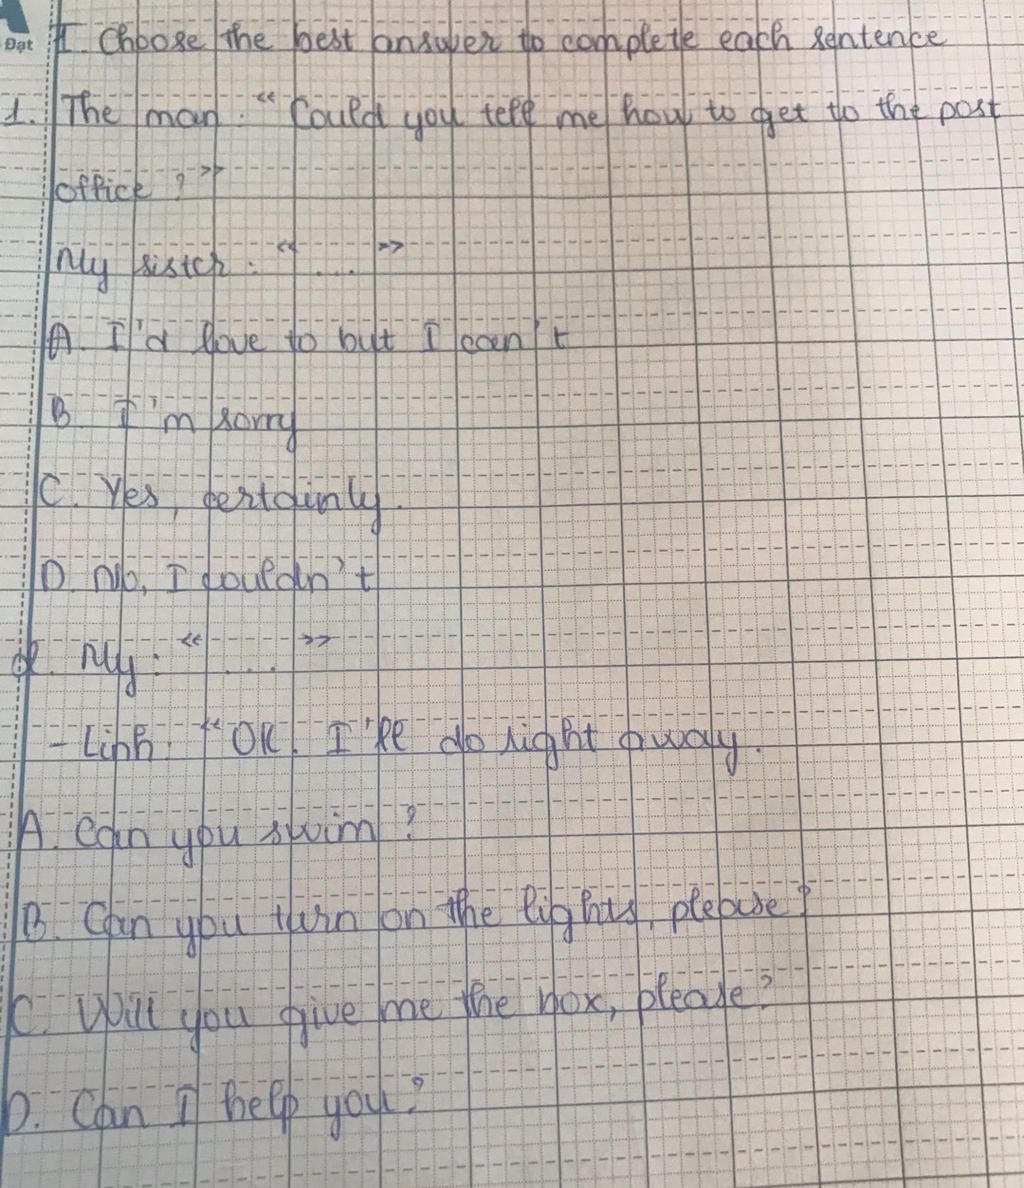 Đạt
I. Choose the best answer to complete each sentence
1. The man: "Could you tell me how to get to the post
office?"
My sister: "....."
A. I'd love to but I can't
B. I'm sorry
C. Yes, certainly.
D. No, I couldn't
2. My: "....."
- Linh: "OK. I'll do right away.
A. Can you swim?
B. Can you turn on the lights, please?
C. Will you give me the box, please?
D. Can I help you?